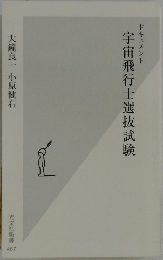 ドキュメント
宇宙飛行士選抜試験
大鐘良一 小原健右
光文社新書